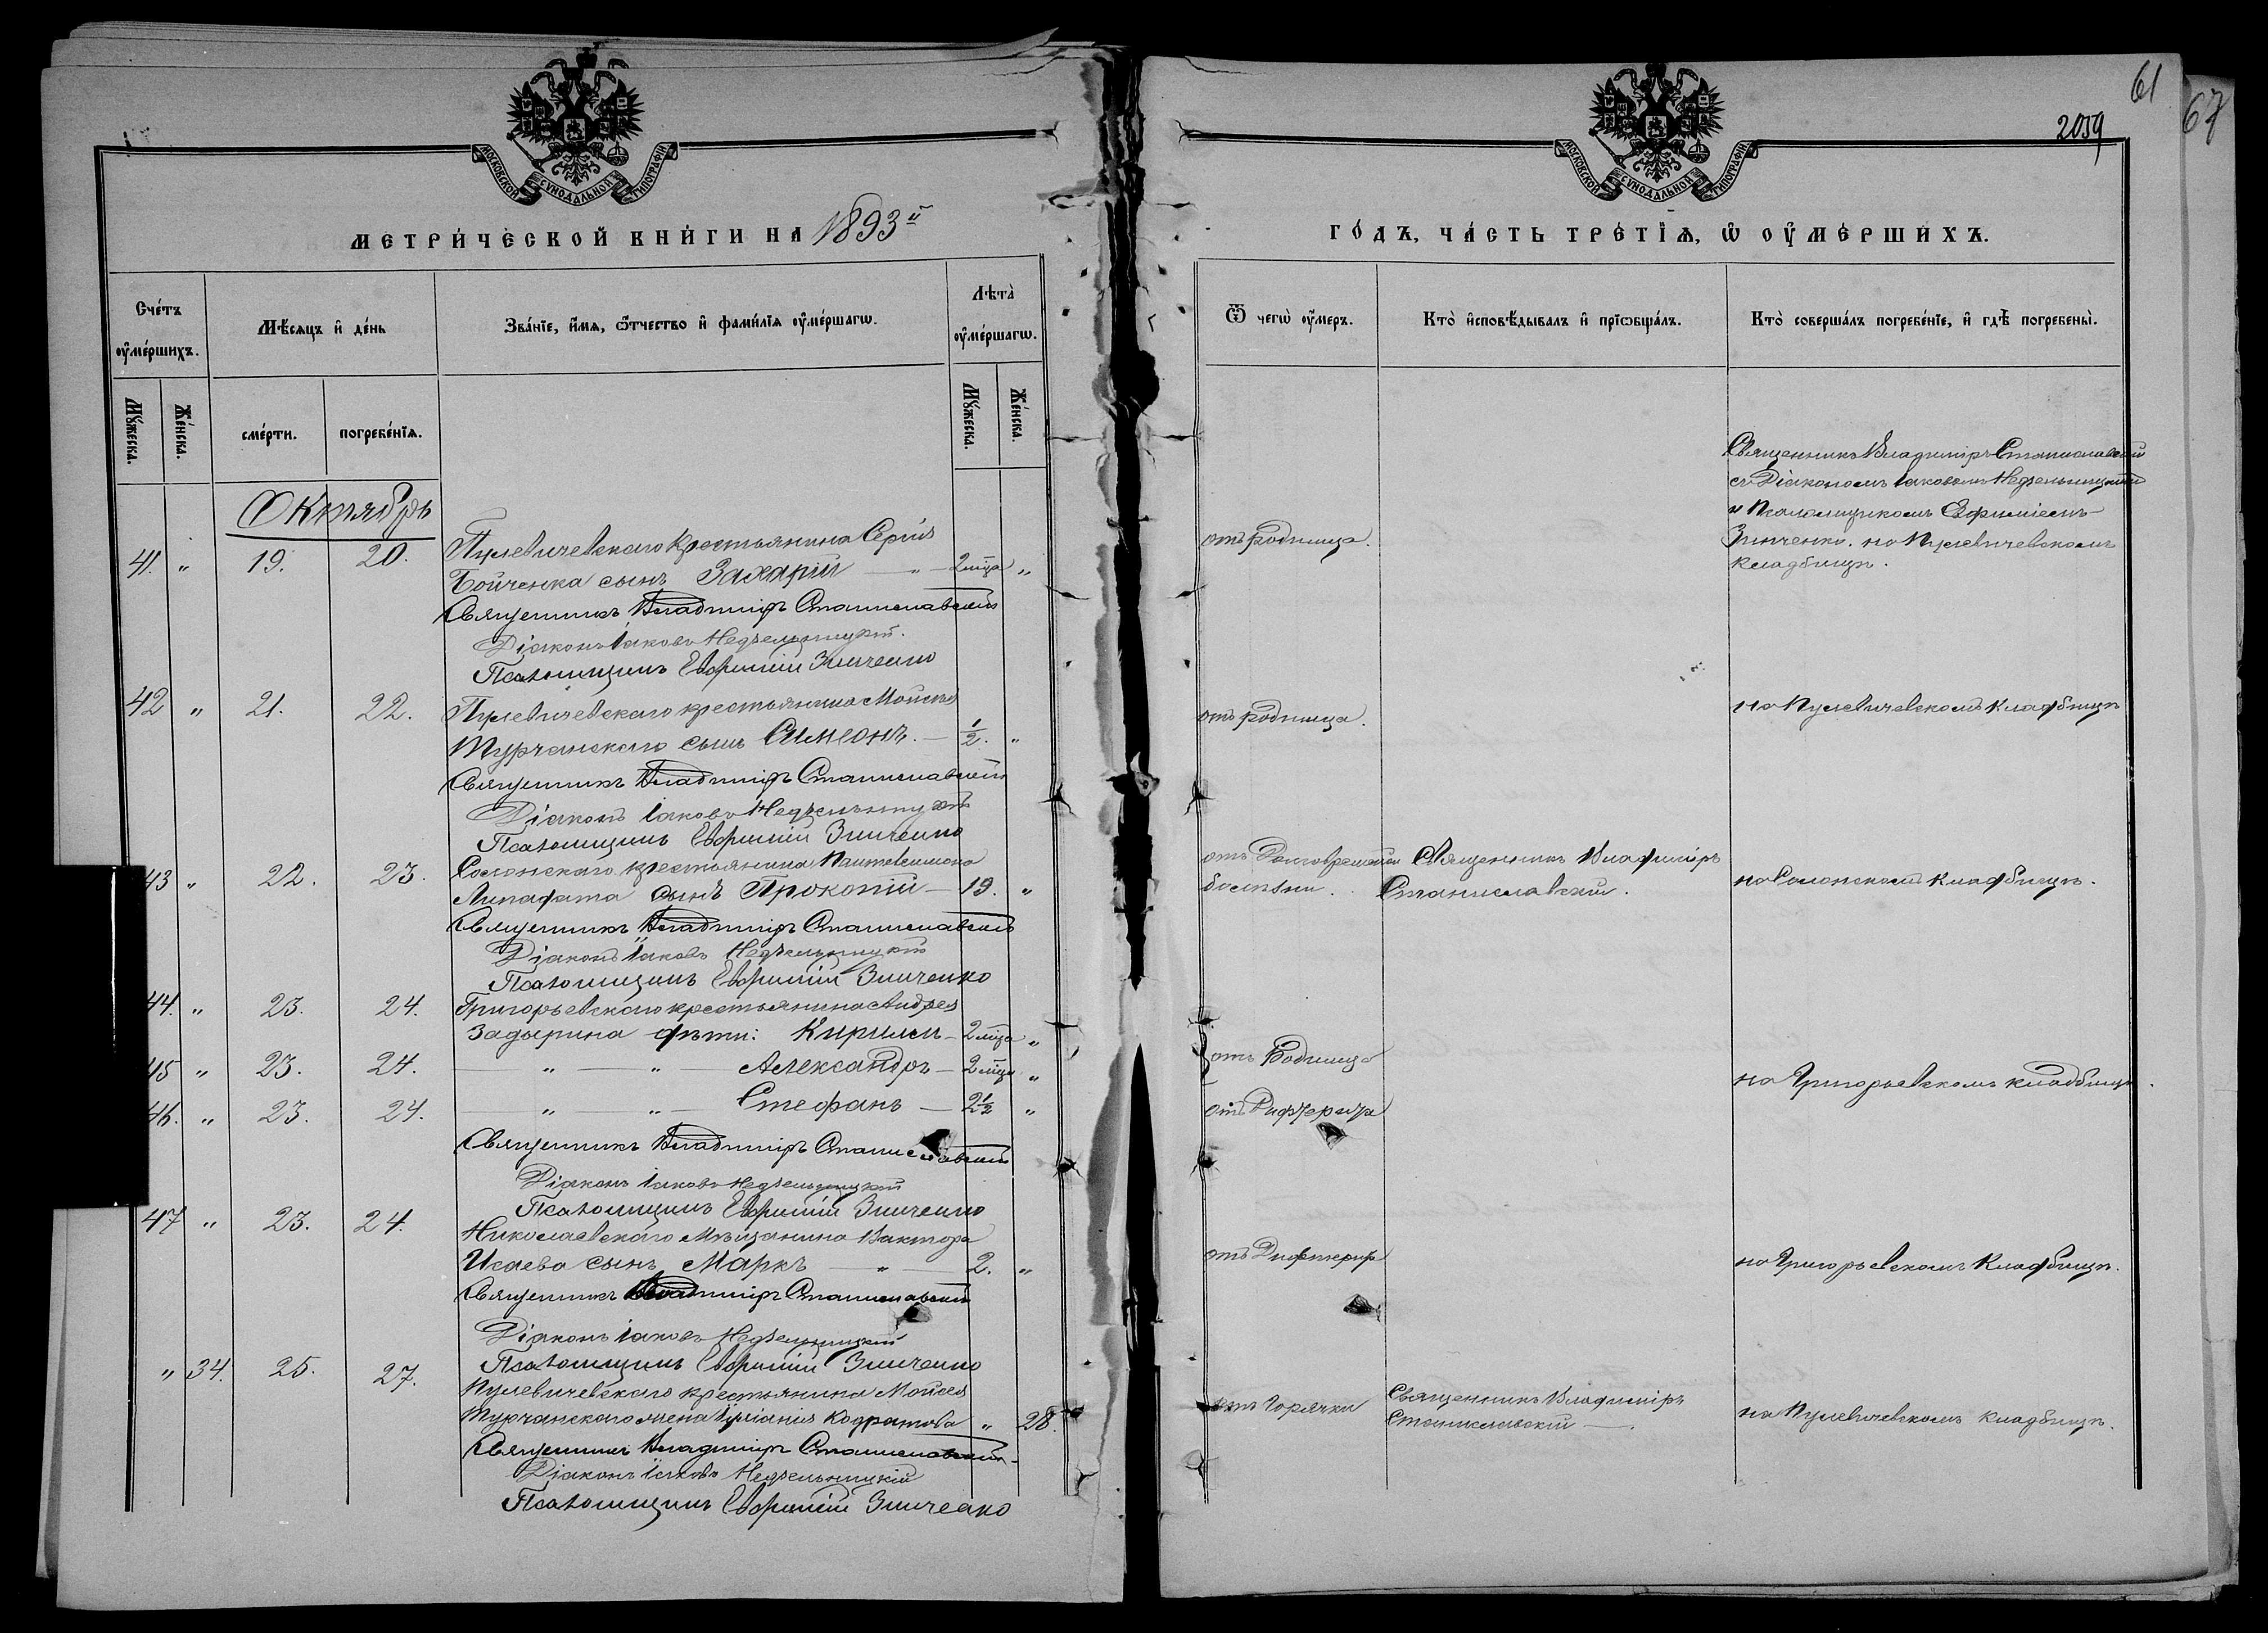 МОСКОВСКОЙ СѴНОДАЛЬНОЙ ТИПОГРАФІИ
МЕТРИ́ЧЕСКОЙ КНИ́ГИ НА 1893й
Сче́тъ оу҆ме́ршихъ.
Мѣ́сяцъ и҆ де́нь
Зва́нїе, и҆́мя, ѻ҆́тчество и҆ фами́лїя оу҆ме́ршагѡ.
Лѣта̀ оу҆ме́ршагѡ.
Мꙋ́жеска.
Же́нска.
сме́рти.
погребе́нїя.
Мꙋ́жеска.
Же́нска.
Октябрь
41. " 19. 20. Пулевичевскаго крестьянина Сергія
Бойченка сынъ Захарій — " — 2 мѣца "
Священникъ Владиміръ Станиславскій
Діаконъ Іаковъ Недзельницкій.
Псаломщикъ Евфимій Зинченко
42 " 21. 22. Пулевичевскаго крестьянина Мойсея
Турчанскаго сынъ Симеонъ. — 1/2. "
Священникъ Владиміръ Станиславскій
Діаконъ Іаковъ Недзельницкій
Псаломщикъ Евфимій Зинченко
43 " 22. 23. Солонскаго крестьянина Пантелимона
Липафата сынъ Прокопій — 19. "
Священникъ Владиміръ Станиславскій
Діаконъ Іаковъ Недзельницкій
Псаломщикъ Евфимій Зинченко
44. " 23. 24. Григорьевскаго крестьянина Андрея
Задырина дѣти: Кириллъ — 2 мѣца "
45 " 23. 24. — " — " — Александръ — 2 мѣца "
46. " 23. 24. — " " — Стефанъ — 2 1/2 "
Священникъ Владиміръ Станиславскій
Діаконъ Іаковъ Недзельницкій
Псаломщикъ Евфимій Зинченко
47 " 23. 24. Николаевскаго Мѣщанина Виктора
Исаева сынъ Маркъ — " — 2. "
Священникъ Владиміръ Станиславскій
Діаконъ Іаковъ Недзельницкій
Псаломщикъ Евфимій Зинченко
" 34. 25. 27. Пулевичевскаго крестьянина Мойсея
Турчанскаго жена Іуліанія Кодратова " 28.
Священникъ Владиміръ Станиславскій
Діаконъ Іаковъ Недзельницкій
Псаломщикъ Евфимій Зинченко
61
67
2059
МОСКОВСКОЙ СѴНОДАЛЬНОЙ ТИПОГРАФІИ
ГО́ДЪ, ЧА́СТЬ ТРЕ́ТЇѦ, Ѽ ОУ҆МЕ́РШИХЪ.
Ѿ чегѡ̀ оу҆́меръ.
Кто̀ и҆сповѣ́дывалъ и҆ прїѡбща́лъ.
Кто̀ соверша́лъ погребе́нїе, и҆ гдѣ̀ погребены̀.
Священникъ Владиміръ Станиславскій
съ Діакономъ Іаковомъ Недзельницкимъ
и Псаломщикомъ Евфиміемъ
отъ родимца. Зинченко. на Пулевичевскомъ
кладбищѣ.
отъ родимца. на Пулевичевскомъ кладбищѣ
отъ Долговременной Священникъ Владиміръ
болѣзни. Станиславскій. на Солонскомъ кладбищѣ.
отъ Родимца
на Григорьевскомъ кладбищѣ.
отъ Дифтерита
отъ Дифтерита на Григорьевскомъ Кладбищѣ.
отъ Горячки Священникъ Владиміръ
Станиславскій —. на Пулевичевскомъ кладбищѣ.